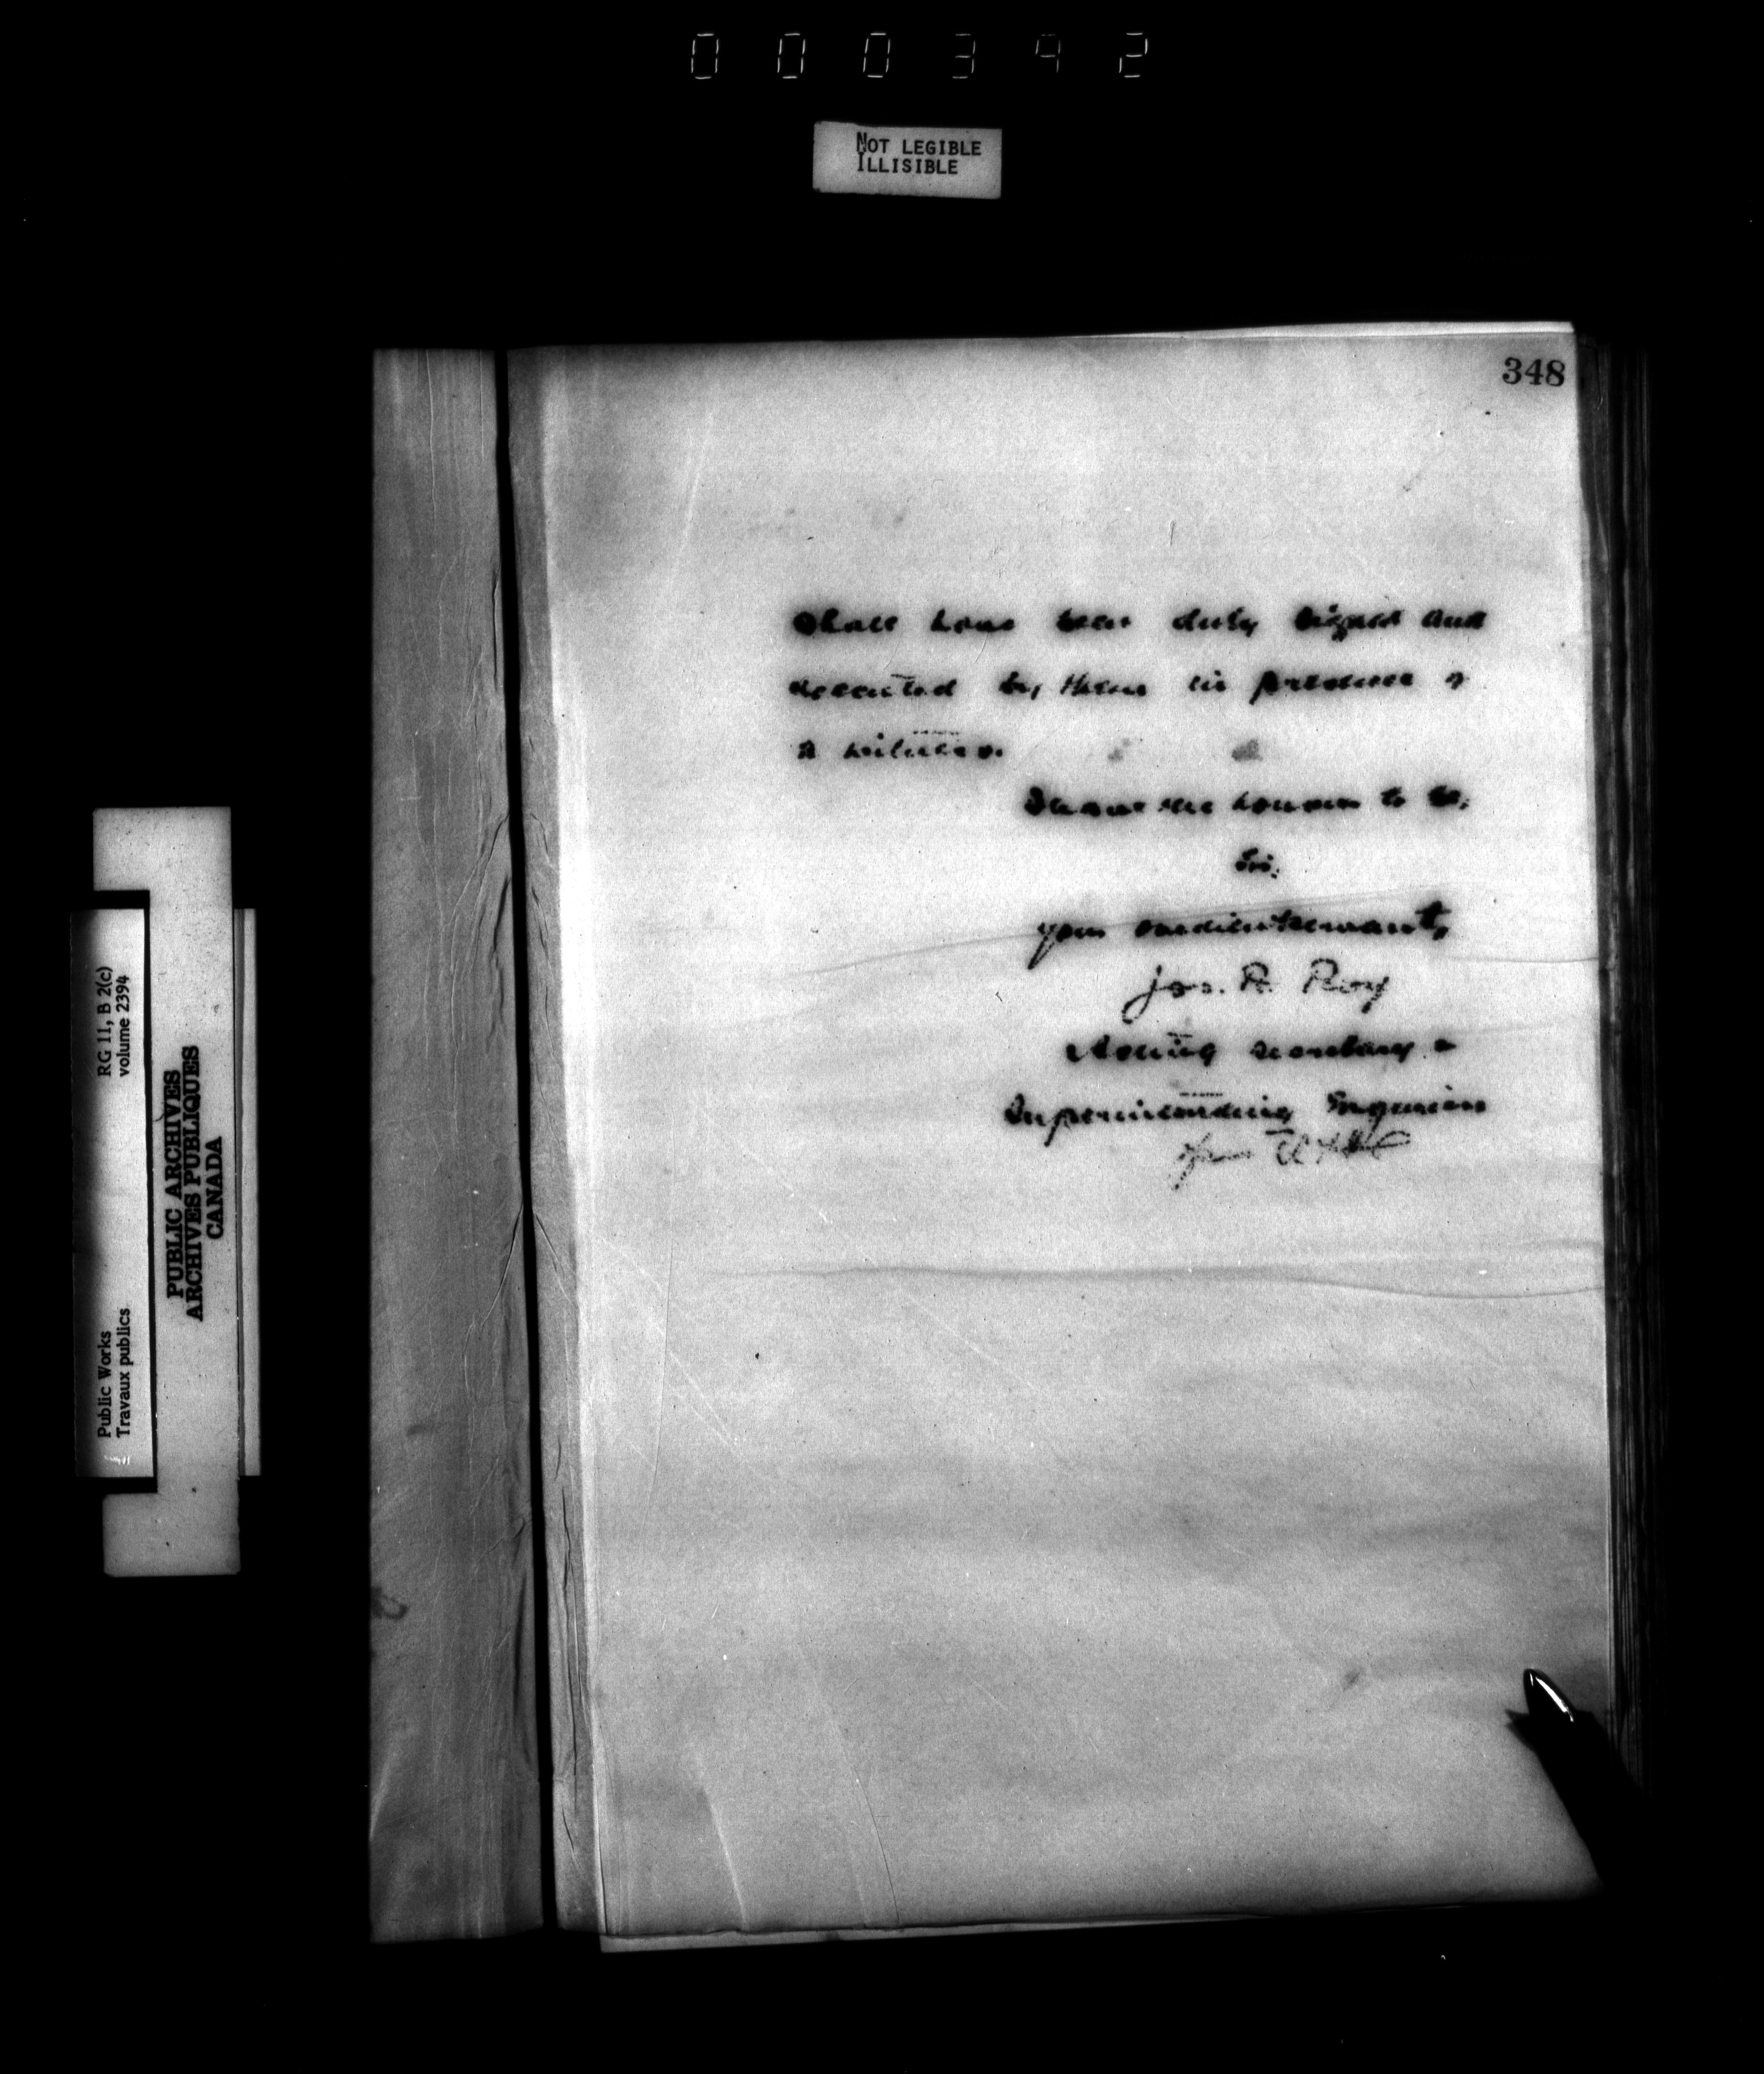 000342
NOT LEGIBLE
ILLISIBLE
348
Shall have been duly signed and
executed by them in presence of
a witness.
I have the honour to be,
Sir,
your obedient servant,
Jos. R. Roy
Acting secretary &
Superintending Engineer
RG 11, B 2(c)
volume 2394
Public Works
Travaux publics
PUBLIC ARCHIVES
ARCHIVES PUBLIQUES
CANADA